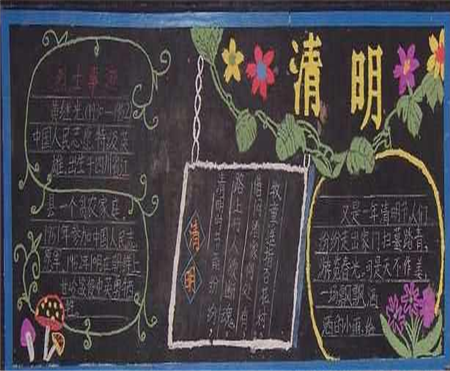 清明
烈士事迹
黄继光(1931—1952)
中国人民志愿特级英
雄,出生于四川
县一个贫农家庭,
1951年参加中国人民志
愿军,
清明
清明时节雨纷纷
路上行人欲断魂
借问酒家何处有
牧童遥指杏花村
又是一年清明节,人们
纷纷走出家门扫墓踏青,
游荡春光。可是天不作美,
一场飘飘洒
洒的小雨,给